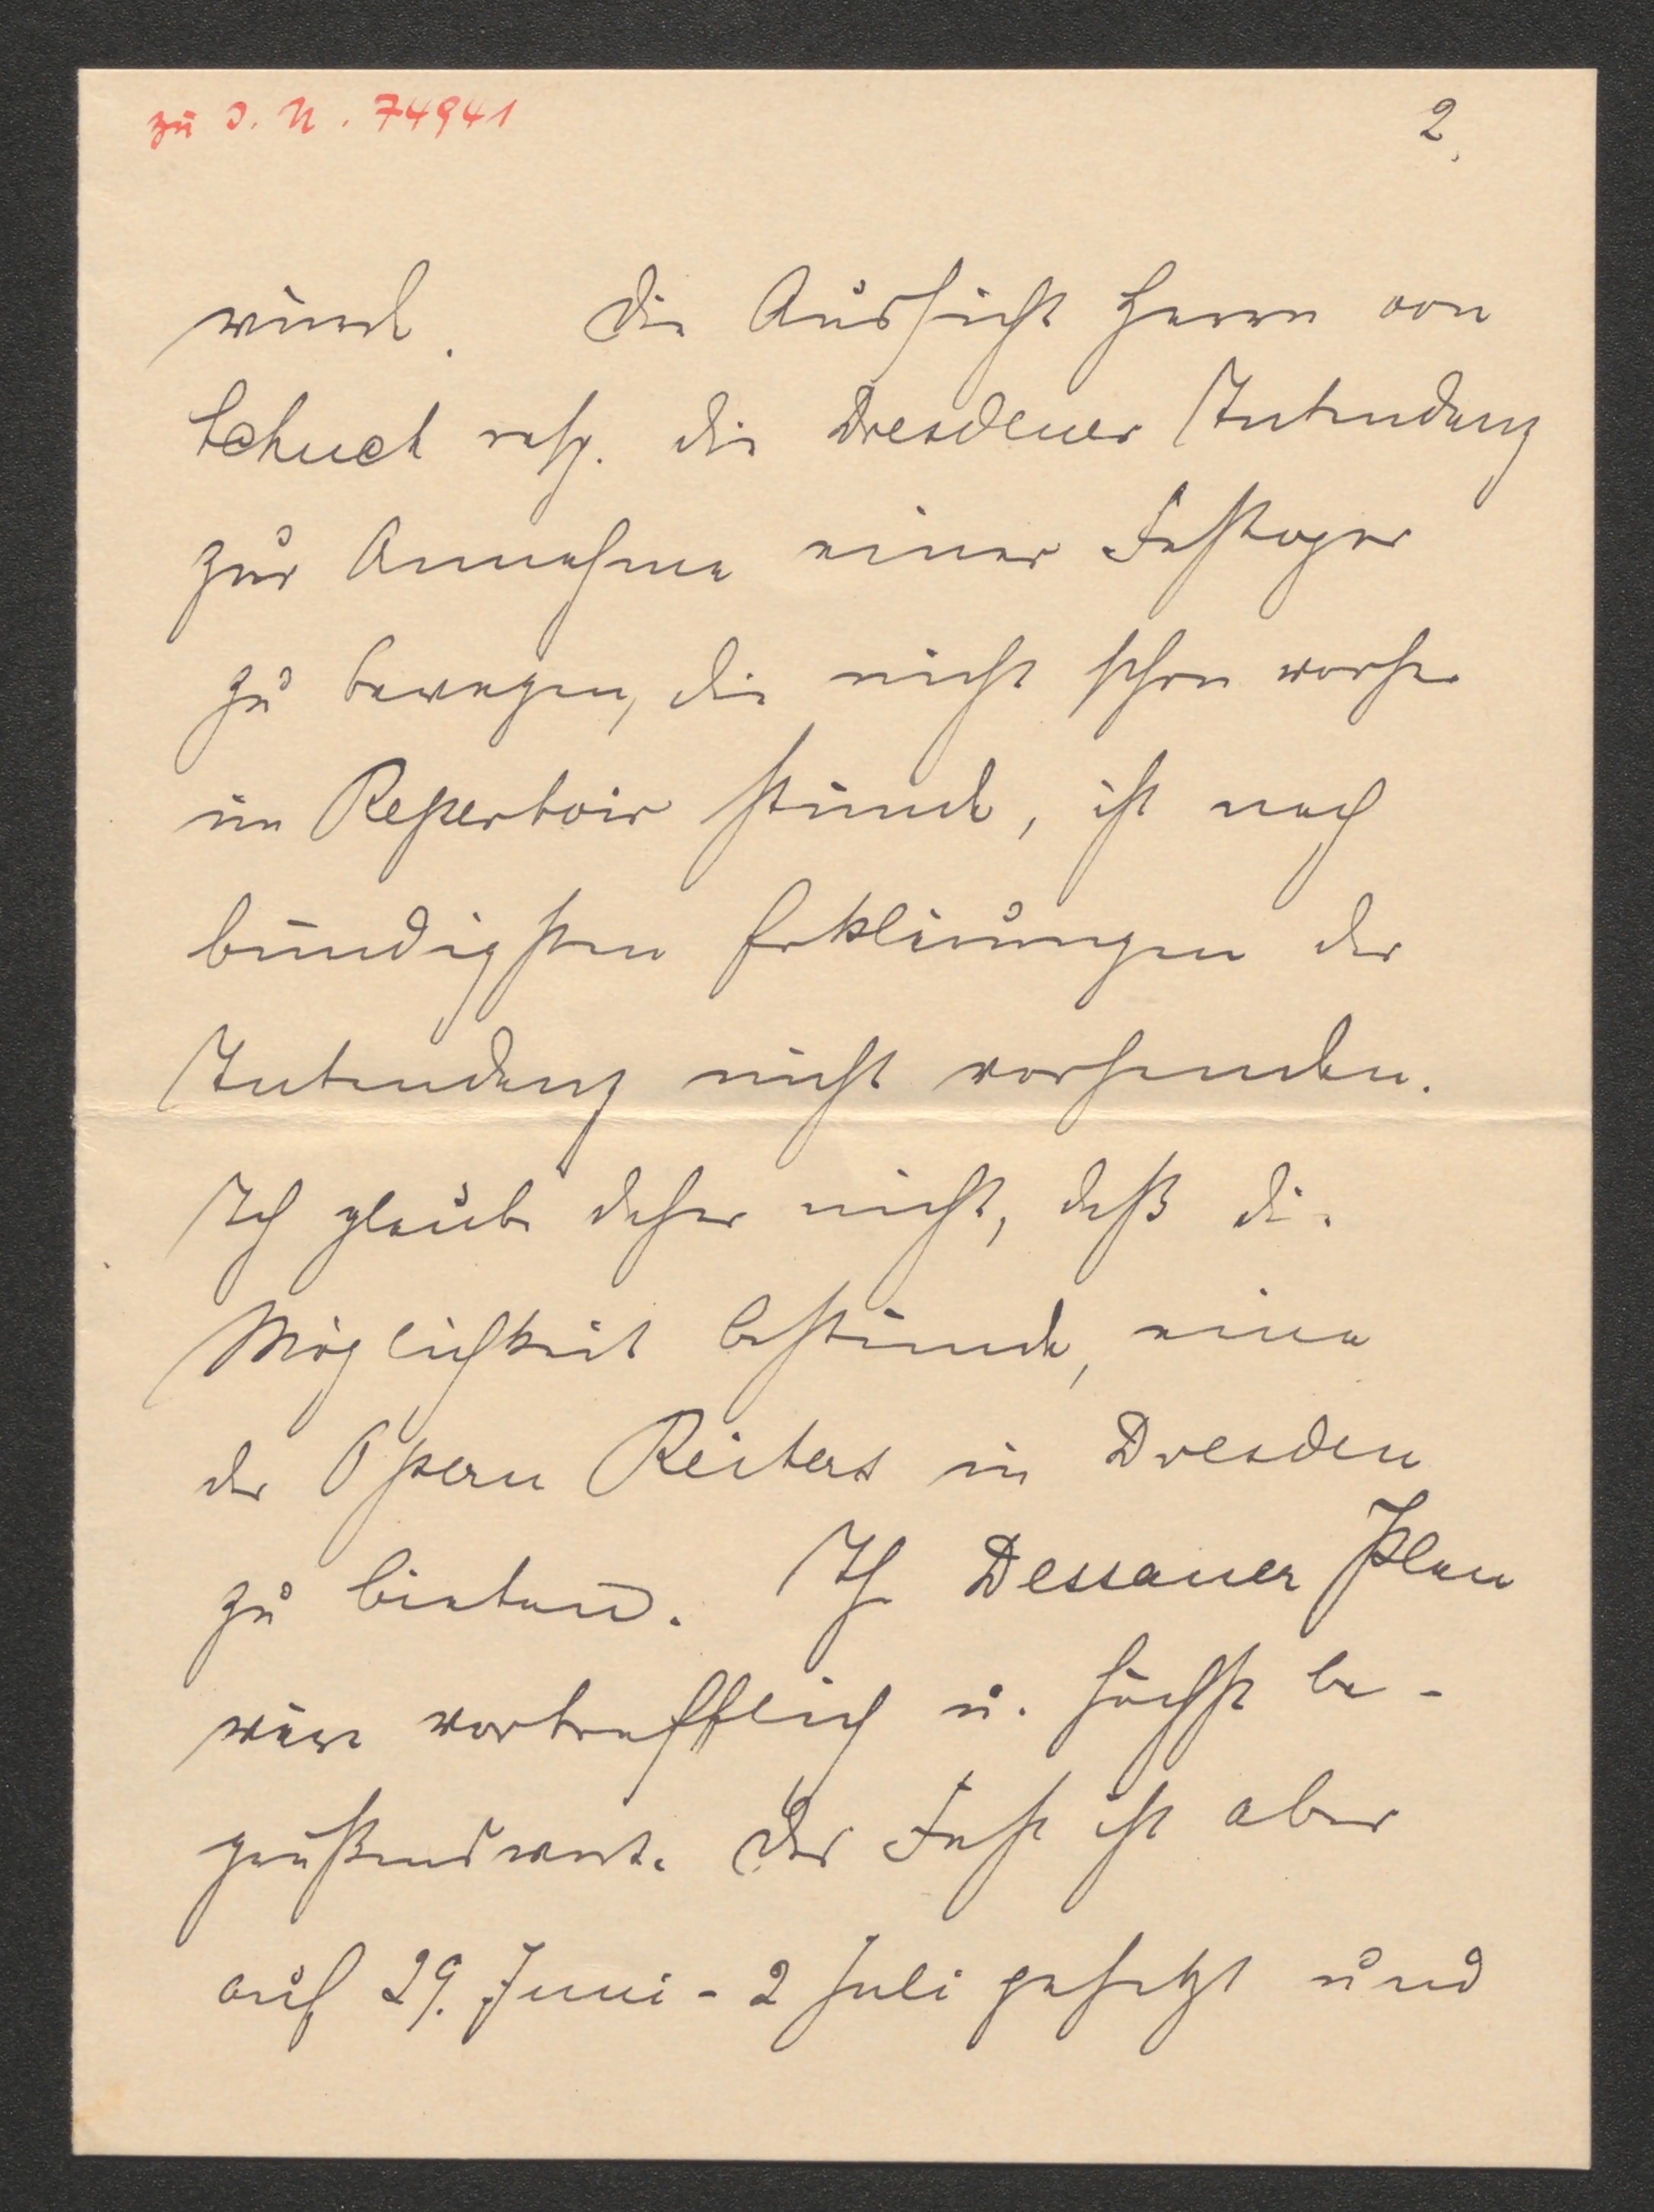 zu I. N. 74941
2.
würde. Die Aussicht Herrn von
Schuch resp. die Dresdener Intendanz
zur Annahme einer Festoper
zu bewegen, die nicht schon vorher
im Repertoir stünde, ist nach
bündigsten Erklärungen der
Intendanz nicht vorhanden.
Ich glaube daher nicht, daß die
Möglichkeit bestünde, eine
der Opern Reiters in Dresden
zu bieten. Ihr Dessauer Plan
wäre vortrefflich u. höchst be-
grüßenswert. Das Fest ist aber
auf 29. Juni - 2 Juli gesetzt und